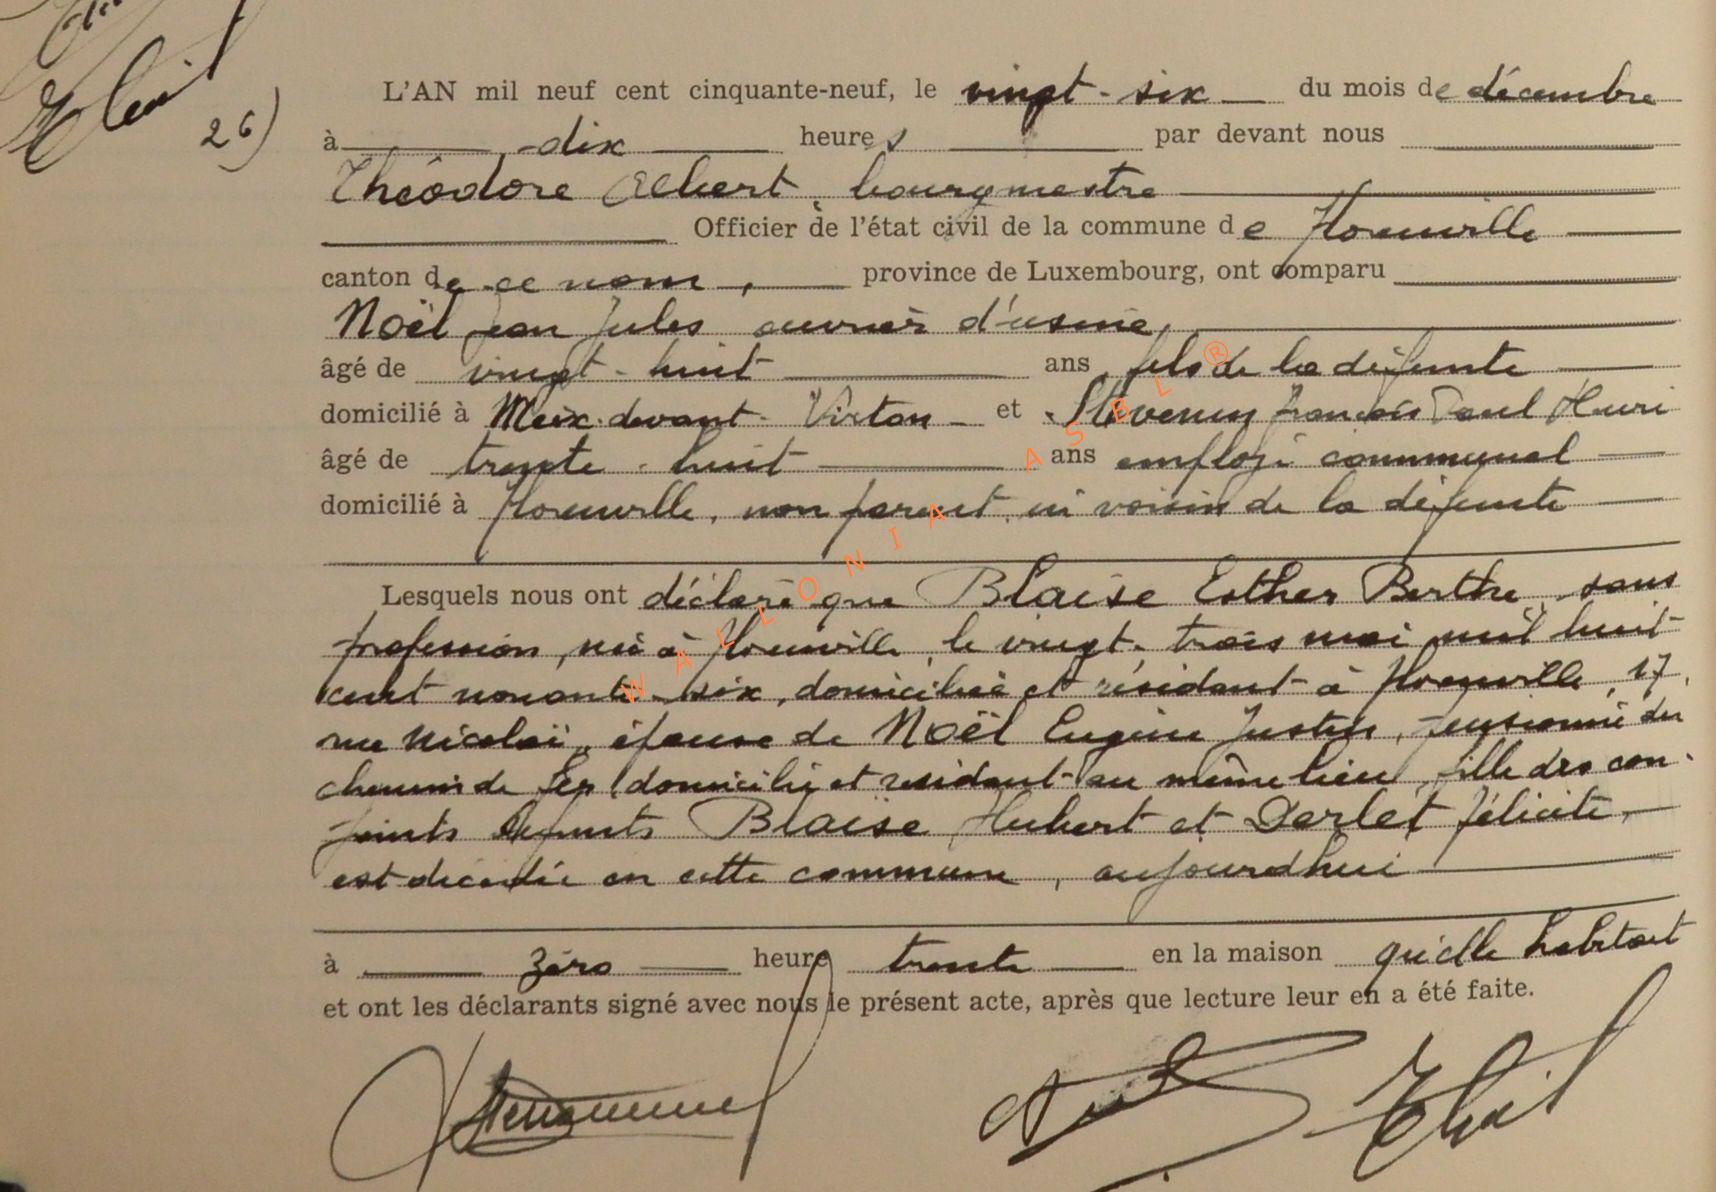 L'AN mil neuf cent cinquante-neuf, le vingt-six du mois de décembre
26) à dix heures par devant nous
Théodore Albert, bourgmestre
Officier de l'état civil de la commune de Florenville
canton de ce nom, province de Luxembourg, ont comparu
Noël Jean Jules ouvrier d'usine,
âgé de vingt-huit ans fils de la défunte
domicilié à Meix-devant-Virton et Stévenin François Paul Henri
âgé de trente-huit ans employé communal
domicilié à Florenville, non parent ni voisin de la défunte
Lesquels nous ont déclaré que Blaise Esther Berthe, sans
profession, née à Florenville, le vingt-trois mai mil huit
cent nonante-six, domiciliée et résidant à Florenville, 17,
rue Nicolaï, épouse de Noël Eugène Justin, pensionné du
chemin de fer, domicilié et résidant au même lieu, fille des con-
joints défunts Blaise Hubert et Derlet Félicité,
est décédée en cette commune, aujourdhui
à zéro heure trente en la maison qu'elle habitait
et ont les déclarants signé avec nous le présent acte, après que lecture leur en a été faite.
WALLONIA ASBL ®